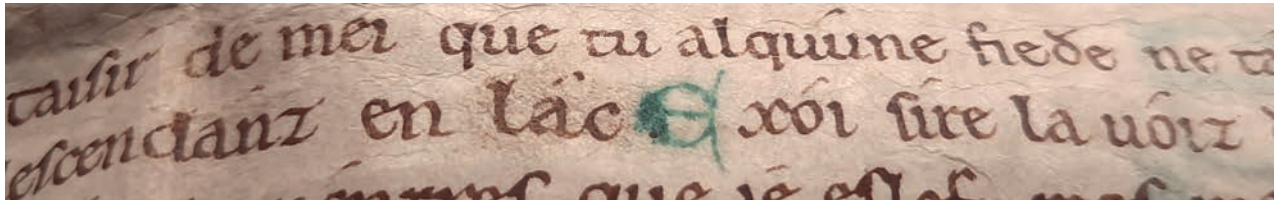 taisir de mei que tu alquúne fiede ne
escendanz en lác Exói sire la uóiz
que ié